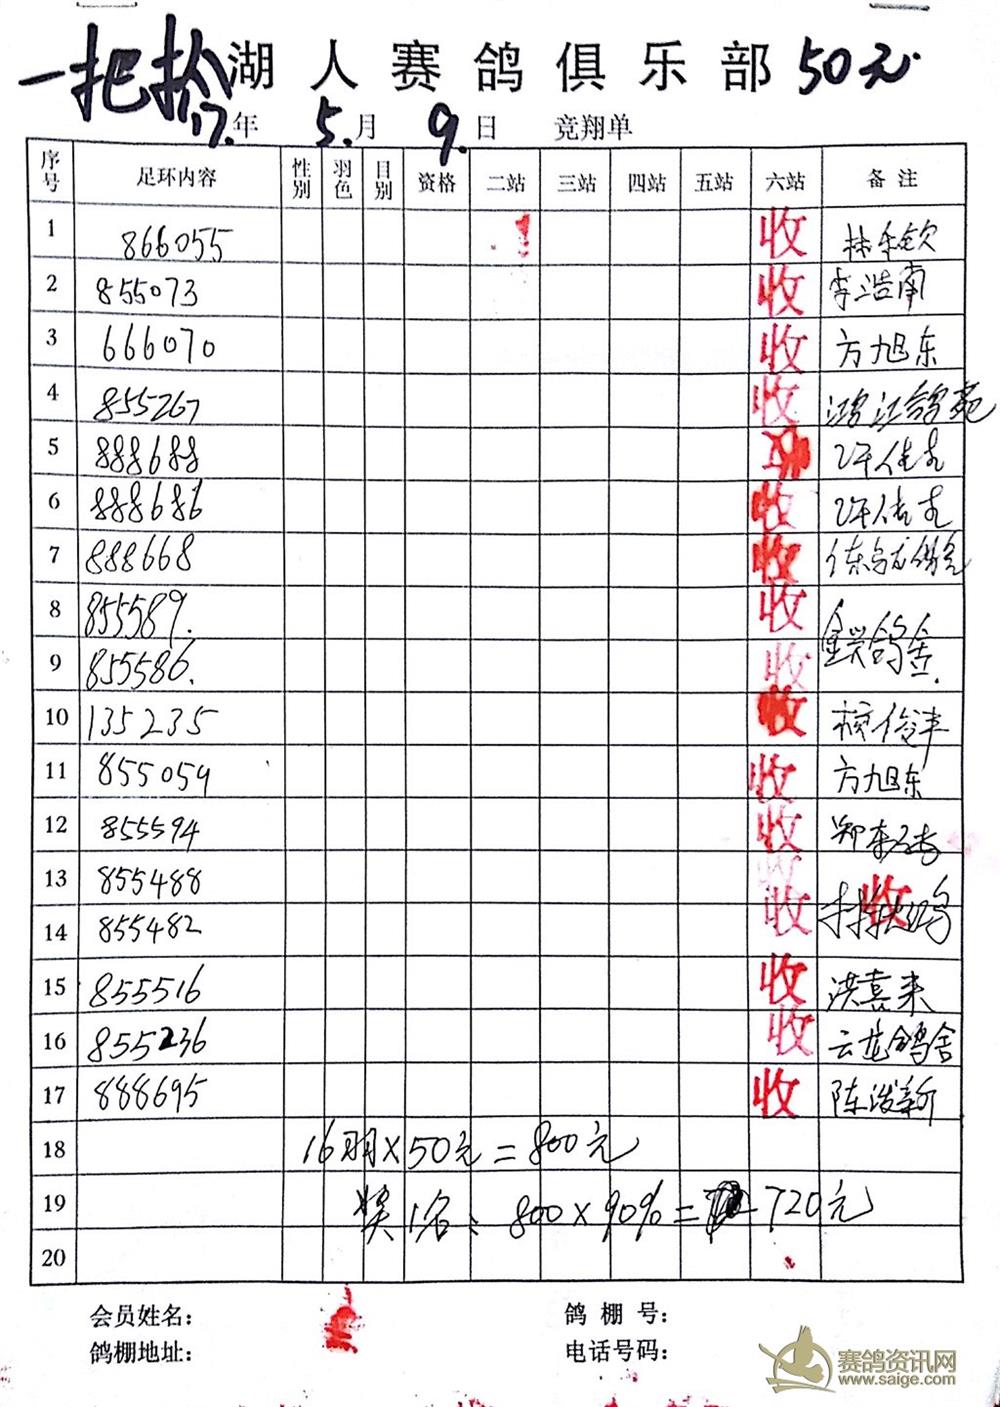 一把抓 湖人赛鸽俱乐部 50元
17.年 5.月 9.日 竞翔单
序号 足环内容 性别 羽色 目别 资格 二站 三站 四站 五站 六站 备注
1 866055 收
2 855073 收 李浩南
3 666070 收 方旭东
4 855267 收
5 888688
6 888686 收
7 888668 收
8 855589. 收
9 855586. 收
10 135235 收
11 855059 收 方旭东
12 855594 收
13 855488 收
14 855482 收 收
15 855516 收 洪喜来
16 855236 收 云龙鸽舍
17 888695 收
18 16羽×50元=800元
19 奖1名: 800×90%= 720元
20
会员姓名: 鸽棚号:
鸽棚地址: 电话号码:
赛鸽资讯网
www.saige.com